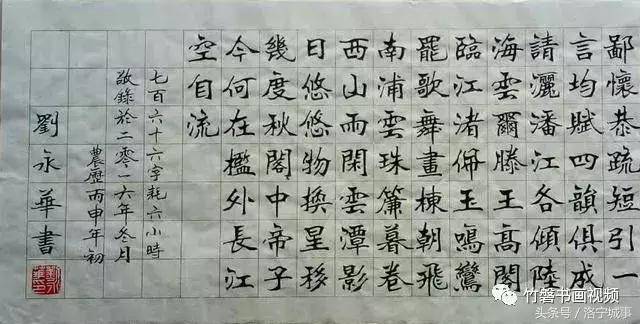 鄙懷恭疏短引一
言均賦四韻俱成
請灑潘江各傾陸
海雲爾滕王高閣
臨江渚佩玉鳴鸞
罷歌舞畫棟朝飛
南浦雲珠簾暮卷
西山雨閑雲潭影
日悠悠物換星移
幾度秋閣中帝子
今何在檻外長江
空自流
七百六十六字耗六小時
敬錄於二零一六年冬月
農歷丙申年初
劉永華書
竹磐书画视频
头条号/洛宁城事